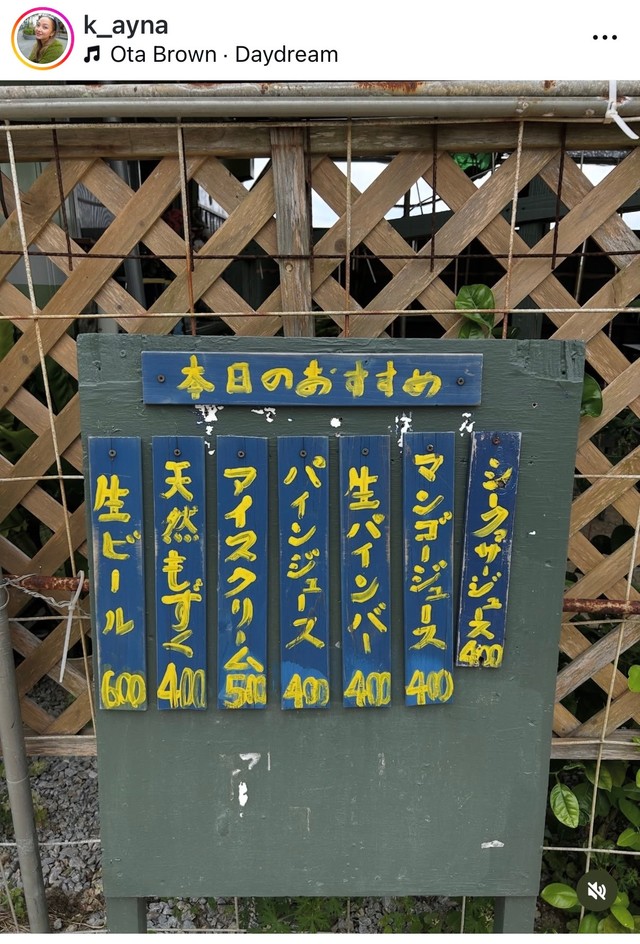 k_ayna
Ota Brown · Daydream
本日のおすすめ
シークァサージュース 400
マンゴージュース 400
生パインバー 400
パインジュース 400
アイスクリーム 500
天然もずく 400
生ビール 600